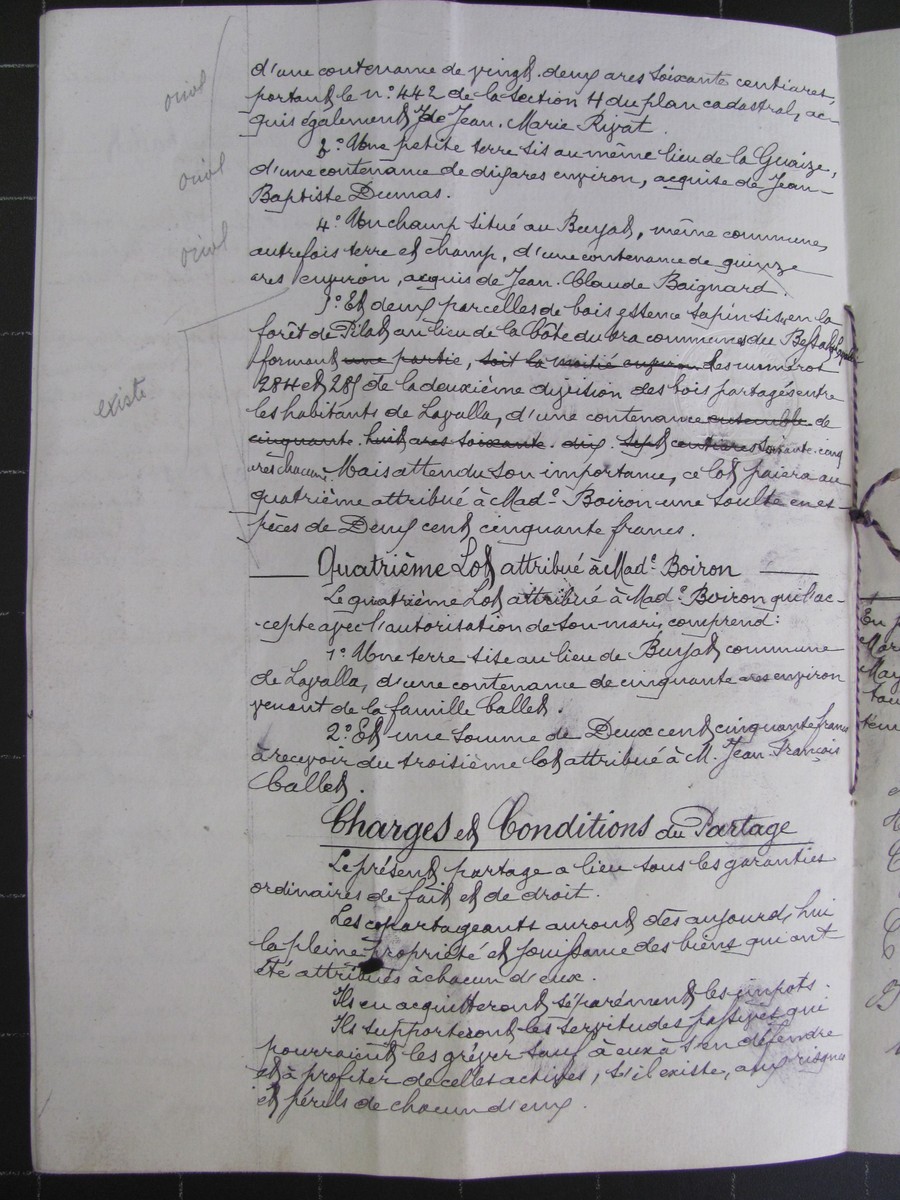 d'une contenance de vingt-deux ares soixante centiares,
portant le n° 442 de la section H du plan cadastral, ac-
quis également de Jean-Marie Rivat.
Une petite terre sis au même lieu de la Guaize,
d'une contenance de dix ares environ, acquise de Jean-
Baptiste Dumas.
4° Un champ situé au Buyat, même commune,
autrefois terre et champ, d'une contenance de quinze
ares environ, acquis de Jean-Claude Baignard.
5° Et deux parcelles de bois essence sapin sises en la
forêt de Pilat au lieu de la Côte du bra commune du Bessat
formant une partie, soit la moitié environ des numéros
284 et 285 de la deuxième division des bois partagés entre
les habitants de Lavalla, d'une contenance ensemble de
cinquante-huit ares soixante-dix-sept centiares soixante-cinq
ares chacun. Mais attendu son importance, ce lot paiera au
quatrième attribué à Mad° Boiron une soulte en es-
pèces de Deux cent cinquante francs.
Quatrième Lot attribué à Mad° Boiron
Le quatrième Lot attribué à Mad° Boiron qui l'ac-
cepte avec l'autorisation de son mari, comprend:
1° Une terre sise au lieu de Buyat, commune
de Lavalla, d'une contenance de cinquante ares environ
venant de la famille Callet.
2° Et une somme de Deux cent cinquante francs
à recevoir du troisième lot attribué à M. Jean-François
Callet.
Charges et Conditions du Partage
Le présent partage a lieu sous les garanties
ordinaires de fait et de droit.
Les copartageants auront dès aujourd'hui
la pleine propriété et jouissance des biens qui ont
été attribués à chacun d'eux.
Ils en acquitteront séparément les impots.
Ils supporteront les servitudes passives qui
pourraient les gréver sauf à eux à s'en défendre
et à profiter de celles actives, s'il existe, aux risques
et périls de chacun d'eux.
existe